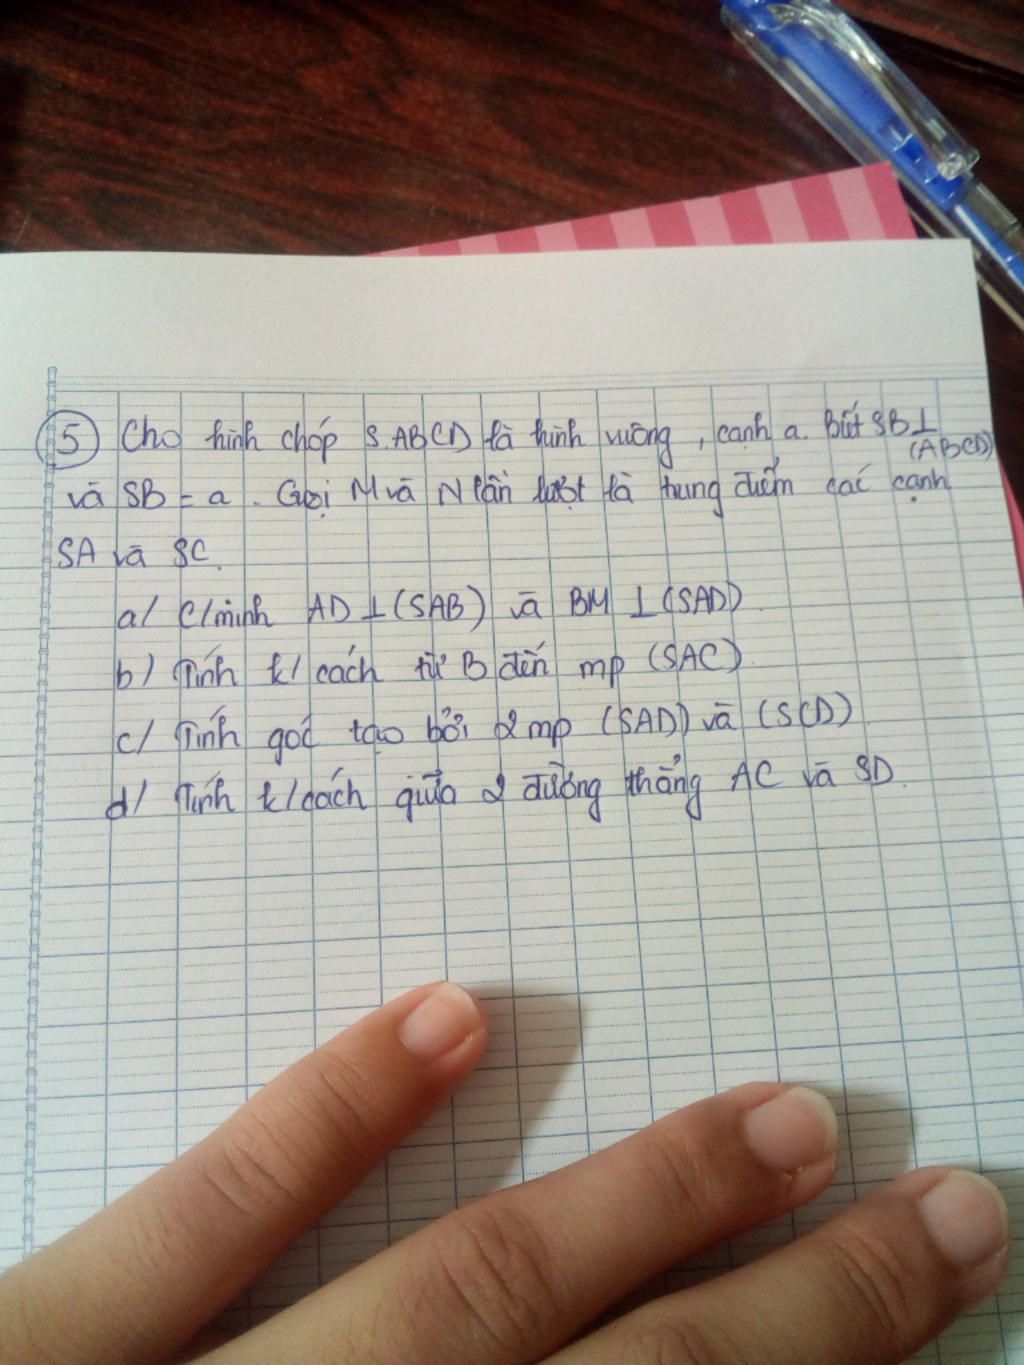 5 Cho hình chóp S.ABCD là hình vuông, cạnh a. Biết SB⊥
(ABCD)
và SB = a. Gọi M và N lần lượt là trung điểm các cạnh
SA và SC.
a/ C/minh AD ⊥ (SAB) và BM ⊥ (SAD).
b/ Tính k/cách từ B đến mp (SAC).
c/ Tính góc tạo bởi 2 mp (SAD) và (SCD).
d/ Tính k/cách giữa 2 đường thẳng AC và SD.